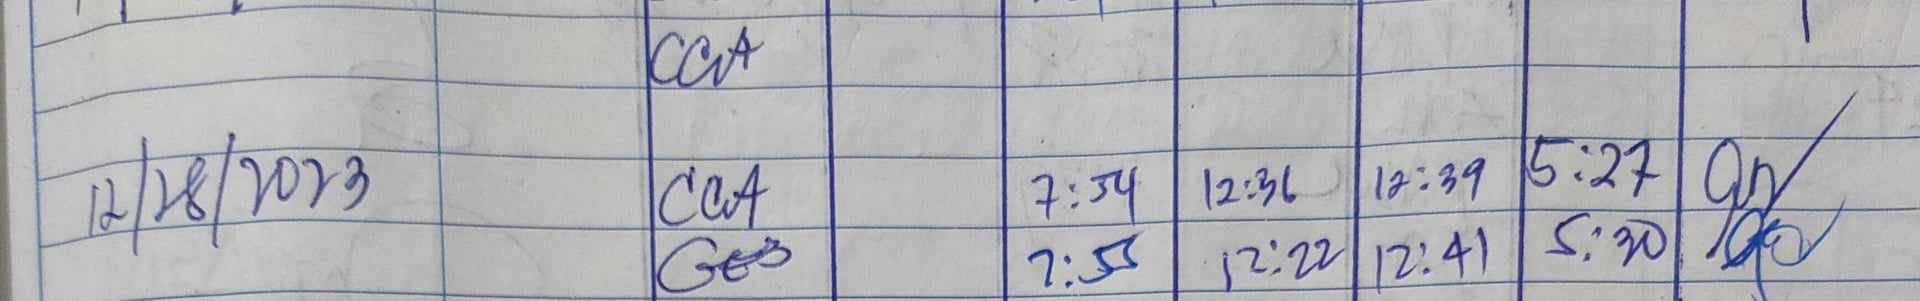 CCA
12/28/2023 CCA 7:54 12:36 12:39 5:27
7:55 12:22 12:41 5:30